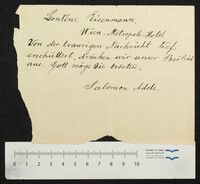 Leontine Eisenmann,
Wien, Metropol-Hotel
Von der traurigen Nachricht tief
erschüttert, drücken wir unser Beileid
aus. Gott möge Sie trösten.
Salomon Adele.
0 1 2 3 4 5 6 7 8 9 10